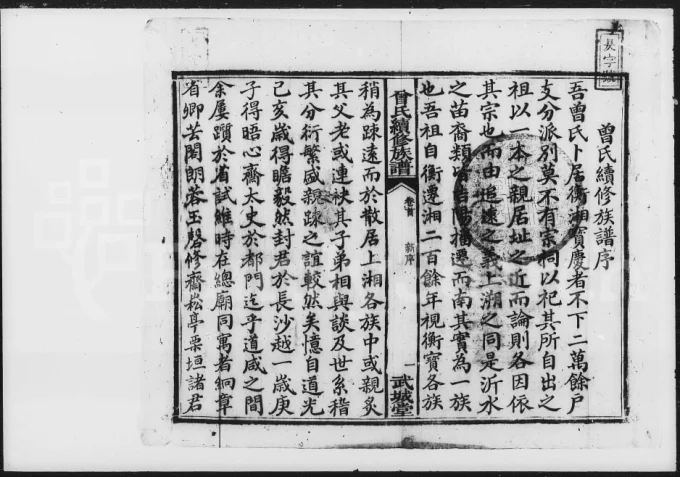 長字號
曾氏續修族譜序
吾曾氏卜居衡湘寶慶者不下二萬餘戶
支分派別莫不有宗祠以祀其所自出之
祖以一本之親居址之近而論則各因依
其宗也而由追遠之義上溯之同是沂水
之苗裔類皆自播遷而南其實為一族
也吾祖自衡遷湘二百餘年視衡寶各族
曾氏續修族譜
卷首
新序
一
武城堂
稍為疎遠而於散居上湘各族中或親炙
其父老或連袂其子弟相與談及世系稽
其分衍繁盛親疎之誼較然矣憶自道光
己亥歲得瞻毅然封君於長沙越一歲庚
子得晤心齋太史於都門迄乎道咸之間
余屢躓於省試維時在總廟同寓者絅章
省卿芸閣朗蓉玉磬修齋崧亭栗垣諸君